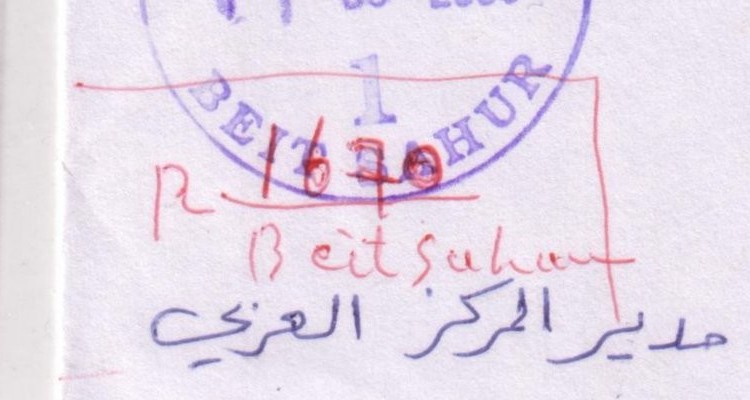 1
BEIT SAHUR
R 1670
Beit Sahur
مدير المركز العربي